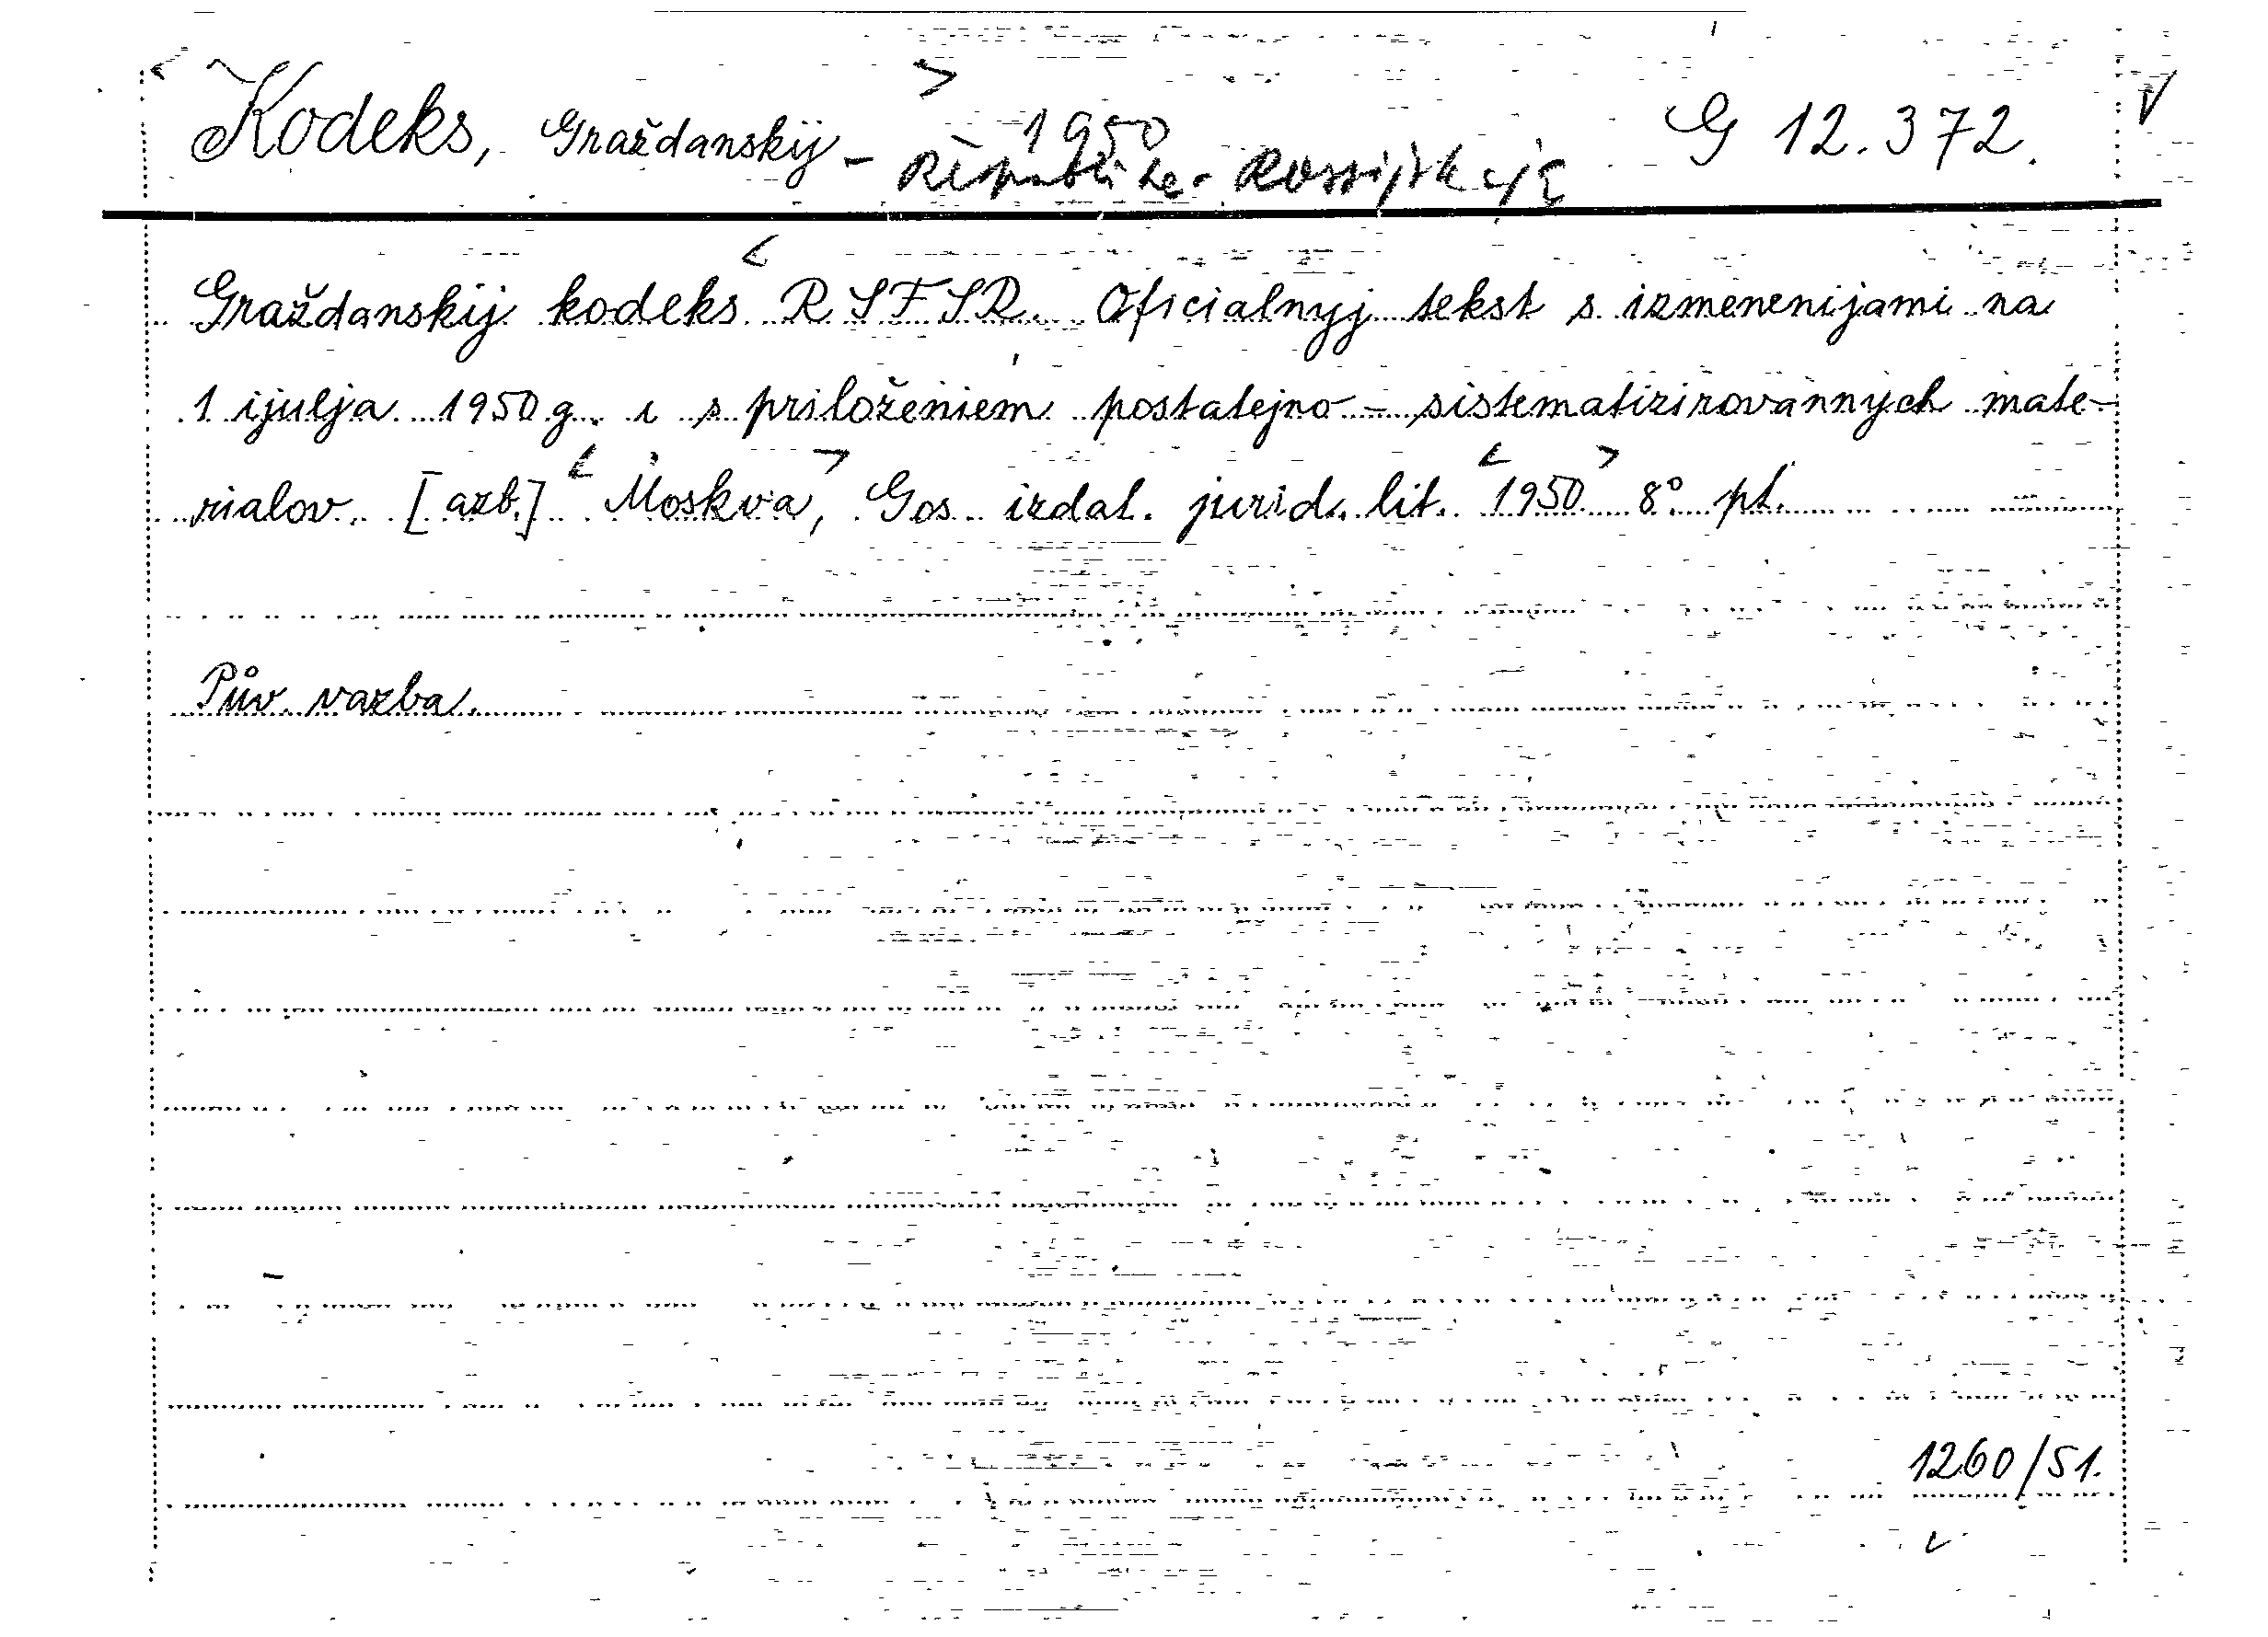 Kodeks, Graždanskij - 1950 G 12.372.
Republika - Rossijskaja
Graždanskij kodeks RSFSR. Oficialnyj tekst s izmenenijami na
1 ijulja 1950 g. i s priloženiem postatejno - sistematizirovannych mate-
rialov. [azb.] Moskva, Gos. izdat. jurid. lit. 1950 8° pl.
Pův. vazba.
1260/51.